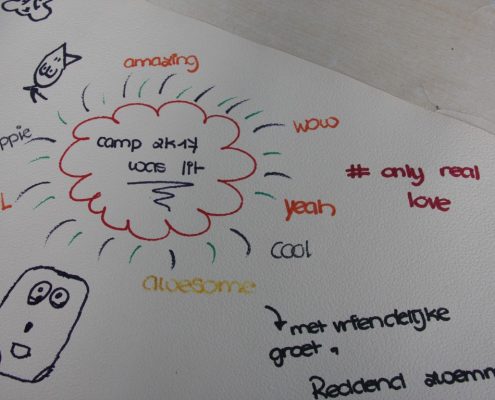 amazing
wow
camp 2K17
was lit
# only real
love
yeah
cool
awesome
met vriendelijke
groet,
Reddend